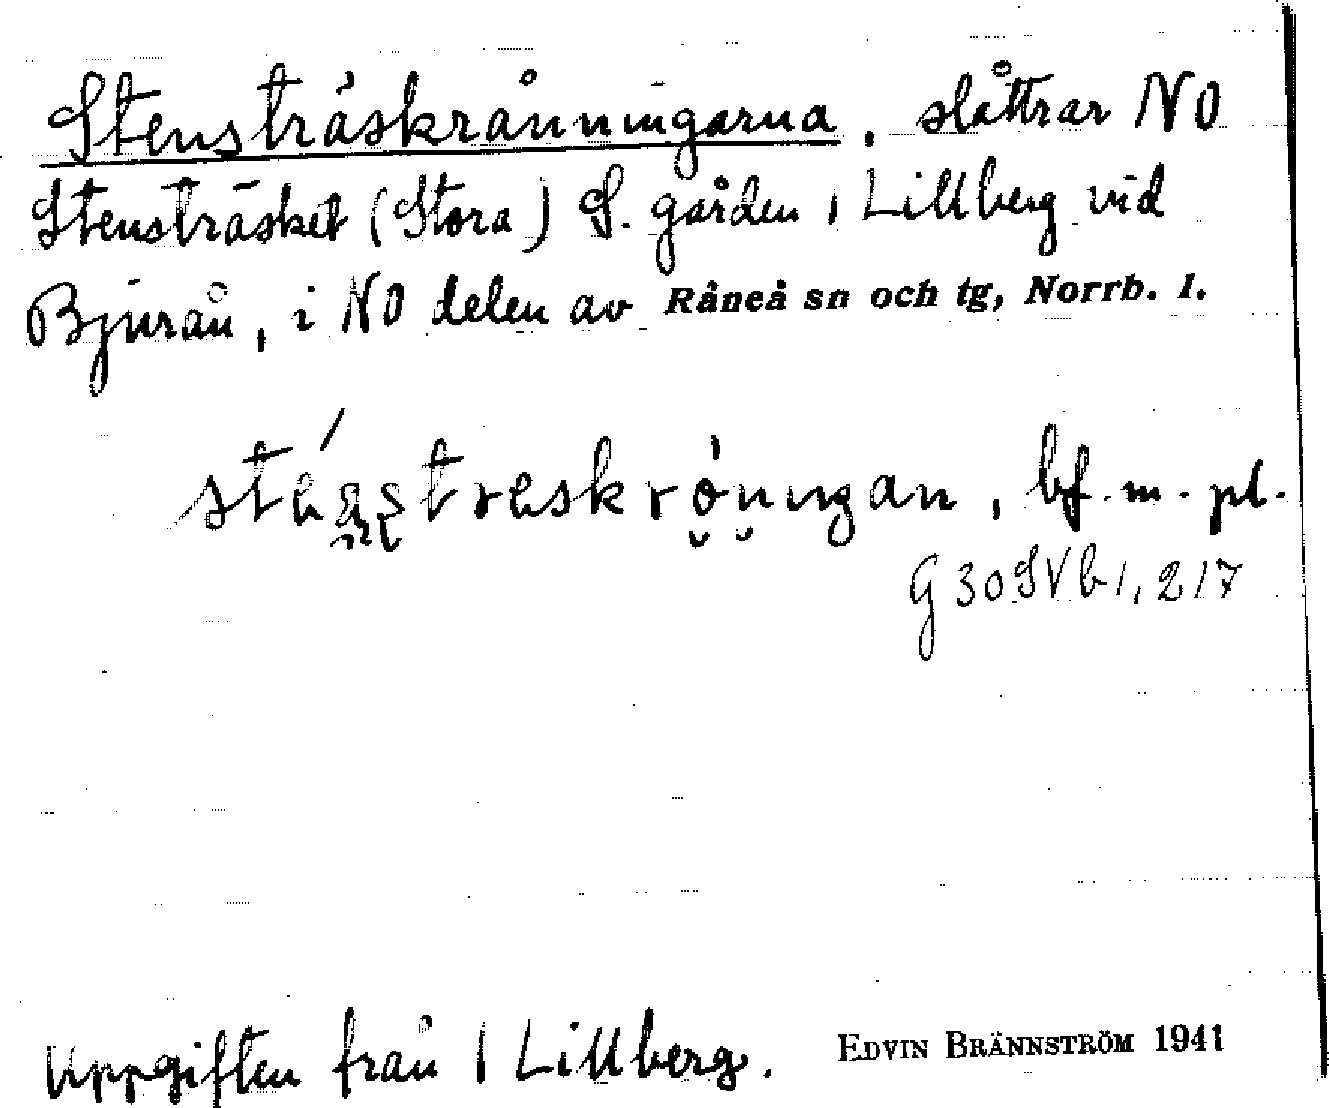 Stensträskrånningarna, slåttrar NO
Stensträsket (Stora) S. gården i Lillberg vid
Bjurån, i NO delen av Råneå sn och tg, Norrb. l.
bf. m. pl.
G 30 S V b 1, 217
Uppgiften från 1 Lillberg. EDVIN BRÄNNSTRÖM 1941